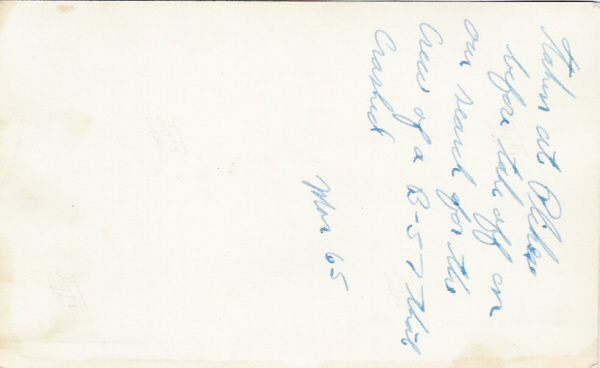 Taken at Pleiku
before take off on
our search for the
Crew of a B-57 that
Crashed
Mar 65